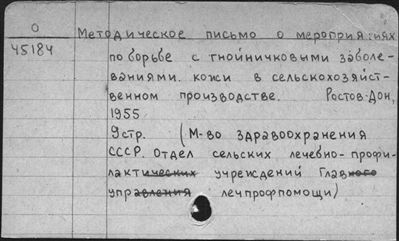 О
Методическое письмо о мероприятиях
45184
по борьбе с гнойничковыми заболе-
ваниями кожи в сельскохозяйст-
венном производстве. Ростов-Дон,
1955
9стр. (М-во здравоохранения
СССР. Отдел сельских лечебно-профи-
лактических учреждений Главного
управления лечпрофпомощи)